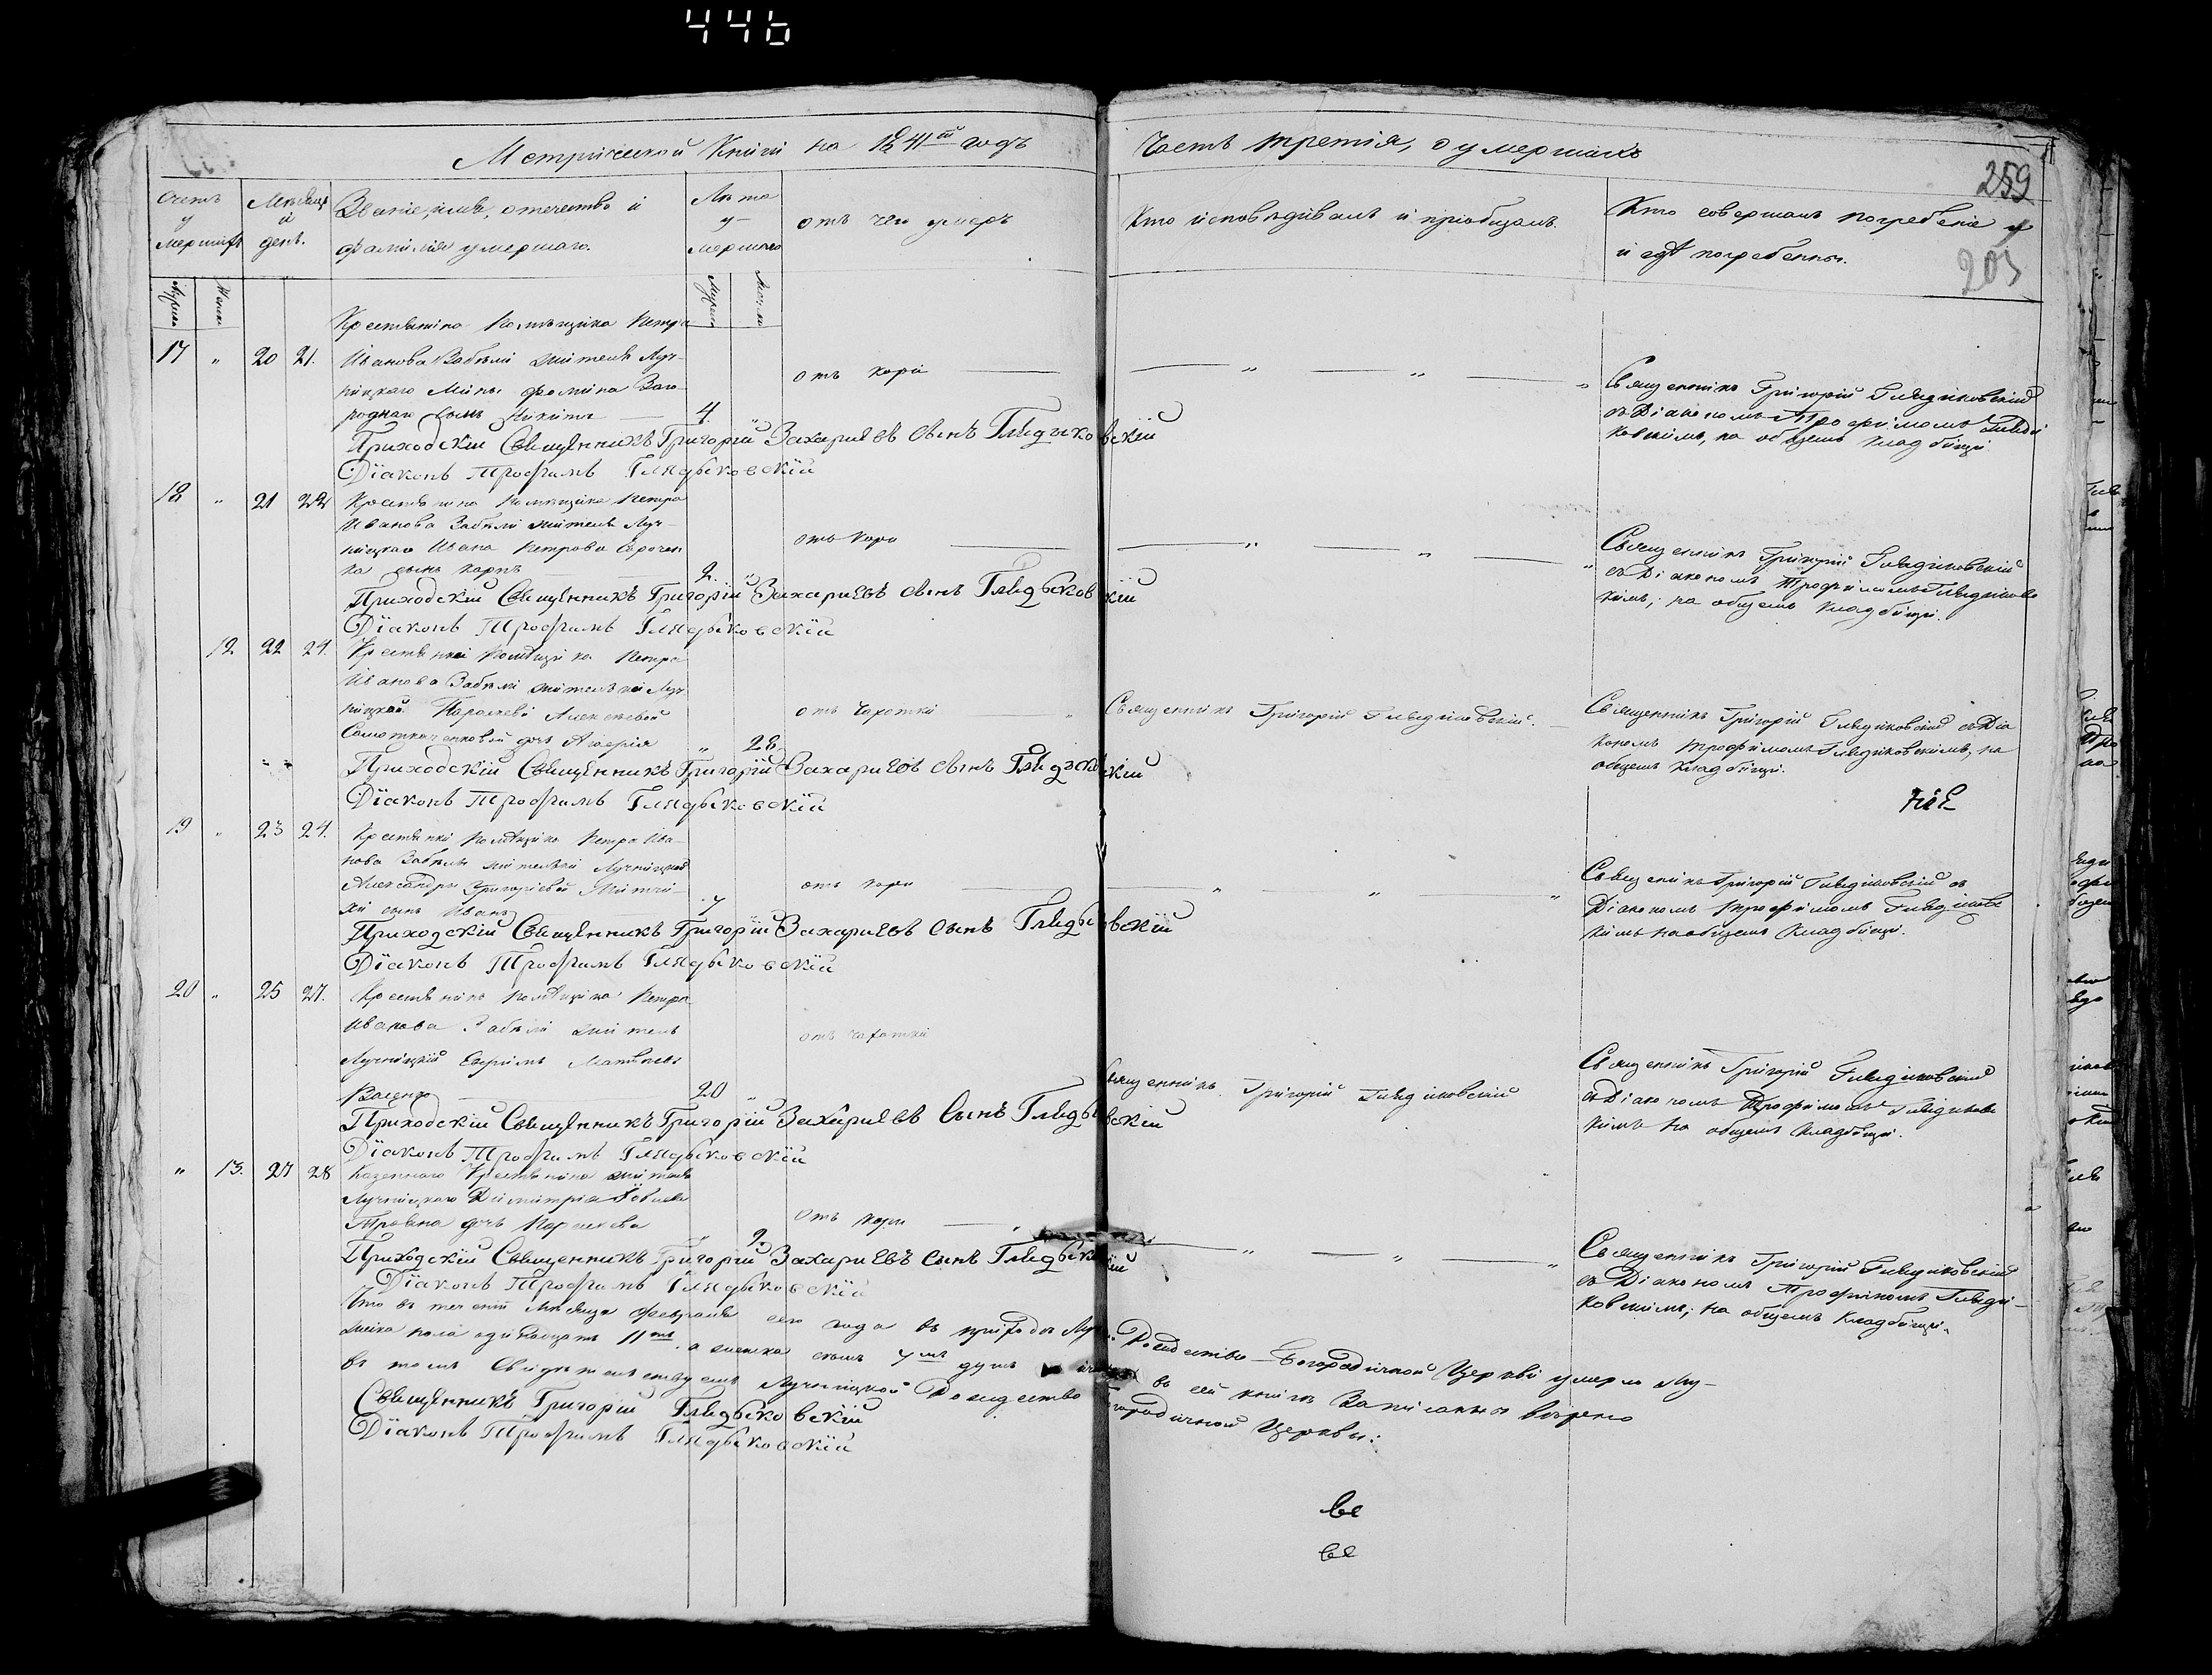 446
Метрической Книги на 1841ой годъ
Часть третія, о умершихъ
259
203
Счетъ умершихъ
Мѣсяцъ и день.
Званіе, имя, отечество и фамилія умершаго.
Лѣта умершаго
отъ чего умеръ
Кто исповѣдывалъ и пріобщалъ.
Кто совершалъ погребеніе и гдѣ погребенны.
Мужска
Женска
Мужска
Женска
17 " 20 21.
Крестьянина Помѣщика Петра
Иванова Забѣлы жителя Луч-
ницкаго Мины Фомина Заго
роднаго сынъ Никита — 4 "
отъ кори — " — " — "
Священникъ Григорій Глядиковскій
съ Діакономъ Трофимомъ Гляди
ковскимъ, на общемъ кладбищи
Приходскій Священникъ Григорій Захаріевъ сынъ Глядыковскій
Діаконъ Трофимъ Глядыковскій
18 " 21 22
Крестьянина Помѣщика Петра
Иванова Забѣлы жителя Луч-
ницкаго Ивана Петрова
ка сынъ Карпъ 2. "
отъ кори — " — " — "
Священникъ Григорій Глядиковскій
съ Діакономъ Трофимомъ Глядиковс
кимъ; на общемъ кладбищи.
Приходскій Священникъ Григорій Захаріевъ сынъ Глядыковскій
Діаконъ Трофимъ Глядыковскій
12 22 24.
Крестьянки Помѣщика Петра
Иванова Забѣлы жительки Луч-
ницкой Параскеви Алексѣевой
дочь " 28.
отъ чахотки "
Священникъ Григорій Глядиковскій. —
Священникъ Григорій Глядиковскій съ Діа
кономъ Трофимомъ Глядиковскимъ, на
общемъ кладбищи.
Приходскій Священникъ Григорій Захаріевъ сынъ Глядыковскій
Діаконъ Трофимъ Глядыковскій
19 " 23 24.
Крестьянки Помѣщика Петра Ива-
нова Забѣлы жительки Лучницкой
Александры Григоріевой
хи сынъ Иванъ 7 "
отъ кори — " — " — "
Священникъ Григорій Глядиковскій съ
Діакономъ Трофимомъ Глядиковс
кимъ на общемъ кладбищи.
Приходскій Священникъ Григорій Захаріевъ сынъ Глядыковскій
Діаконъ Трофимъ Глядыковскій
20 " 25 27.
Крестьянинъ Помѣщика Петра
Иванова Забѣлы житель
Лучницкій Ефимъ Матвѣевъ
20 "
отъ чахотки
Священникъ Григорій Глядиковскій
Священникъ Григорій Глядиковскій
съ Діакономъ Трофимомъ Глядиковс
кимъ на общемъ кладбищи.
Приходскій Священникъ Григорій Захаріевъ Сынъ Глядыковскій
Діаконъ Трофимъ Глядыковскій
" 13. 27 28
Казеннаго Крестьянина жителя
Лучницкаго Димитрія
дочь Параскева " 2.
Отъ кори — " — " — "
Священникъ Григорій Глядиковскій
съ Діакономъ Трофимомъ Гляди-
ковскимъ; на общемъ кладбищи.
Приходскій Священникъ Григорій Захаріевъ сынъ Глядыковскій
Діаконъ Трофимъ Глядыковскій
Что въ теченіи Мѣсяца Февраля сего года въ приходѣ Рождество-Богородичной Церкви умерло му-
жеска пола одинадцать 11ть, а женска семь 7мь душъ въ сей книгѣ Записаны вѣрно
въ томъ Свидѣтельствуемъ Лучницкой Рождество Богородичной Церкви:
Священникъ Григорій Глядыковскій
Діаконъ Трофимъ Глядыковскій